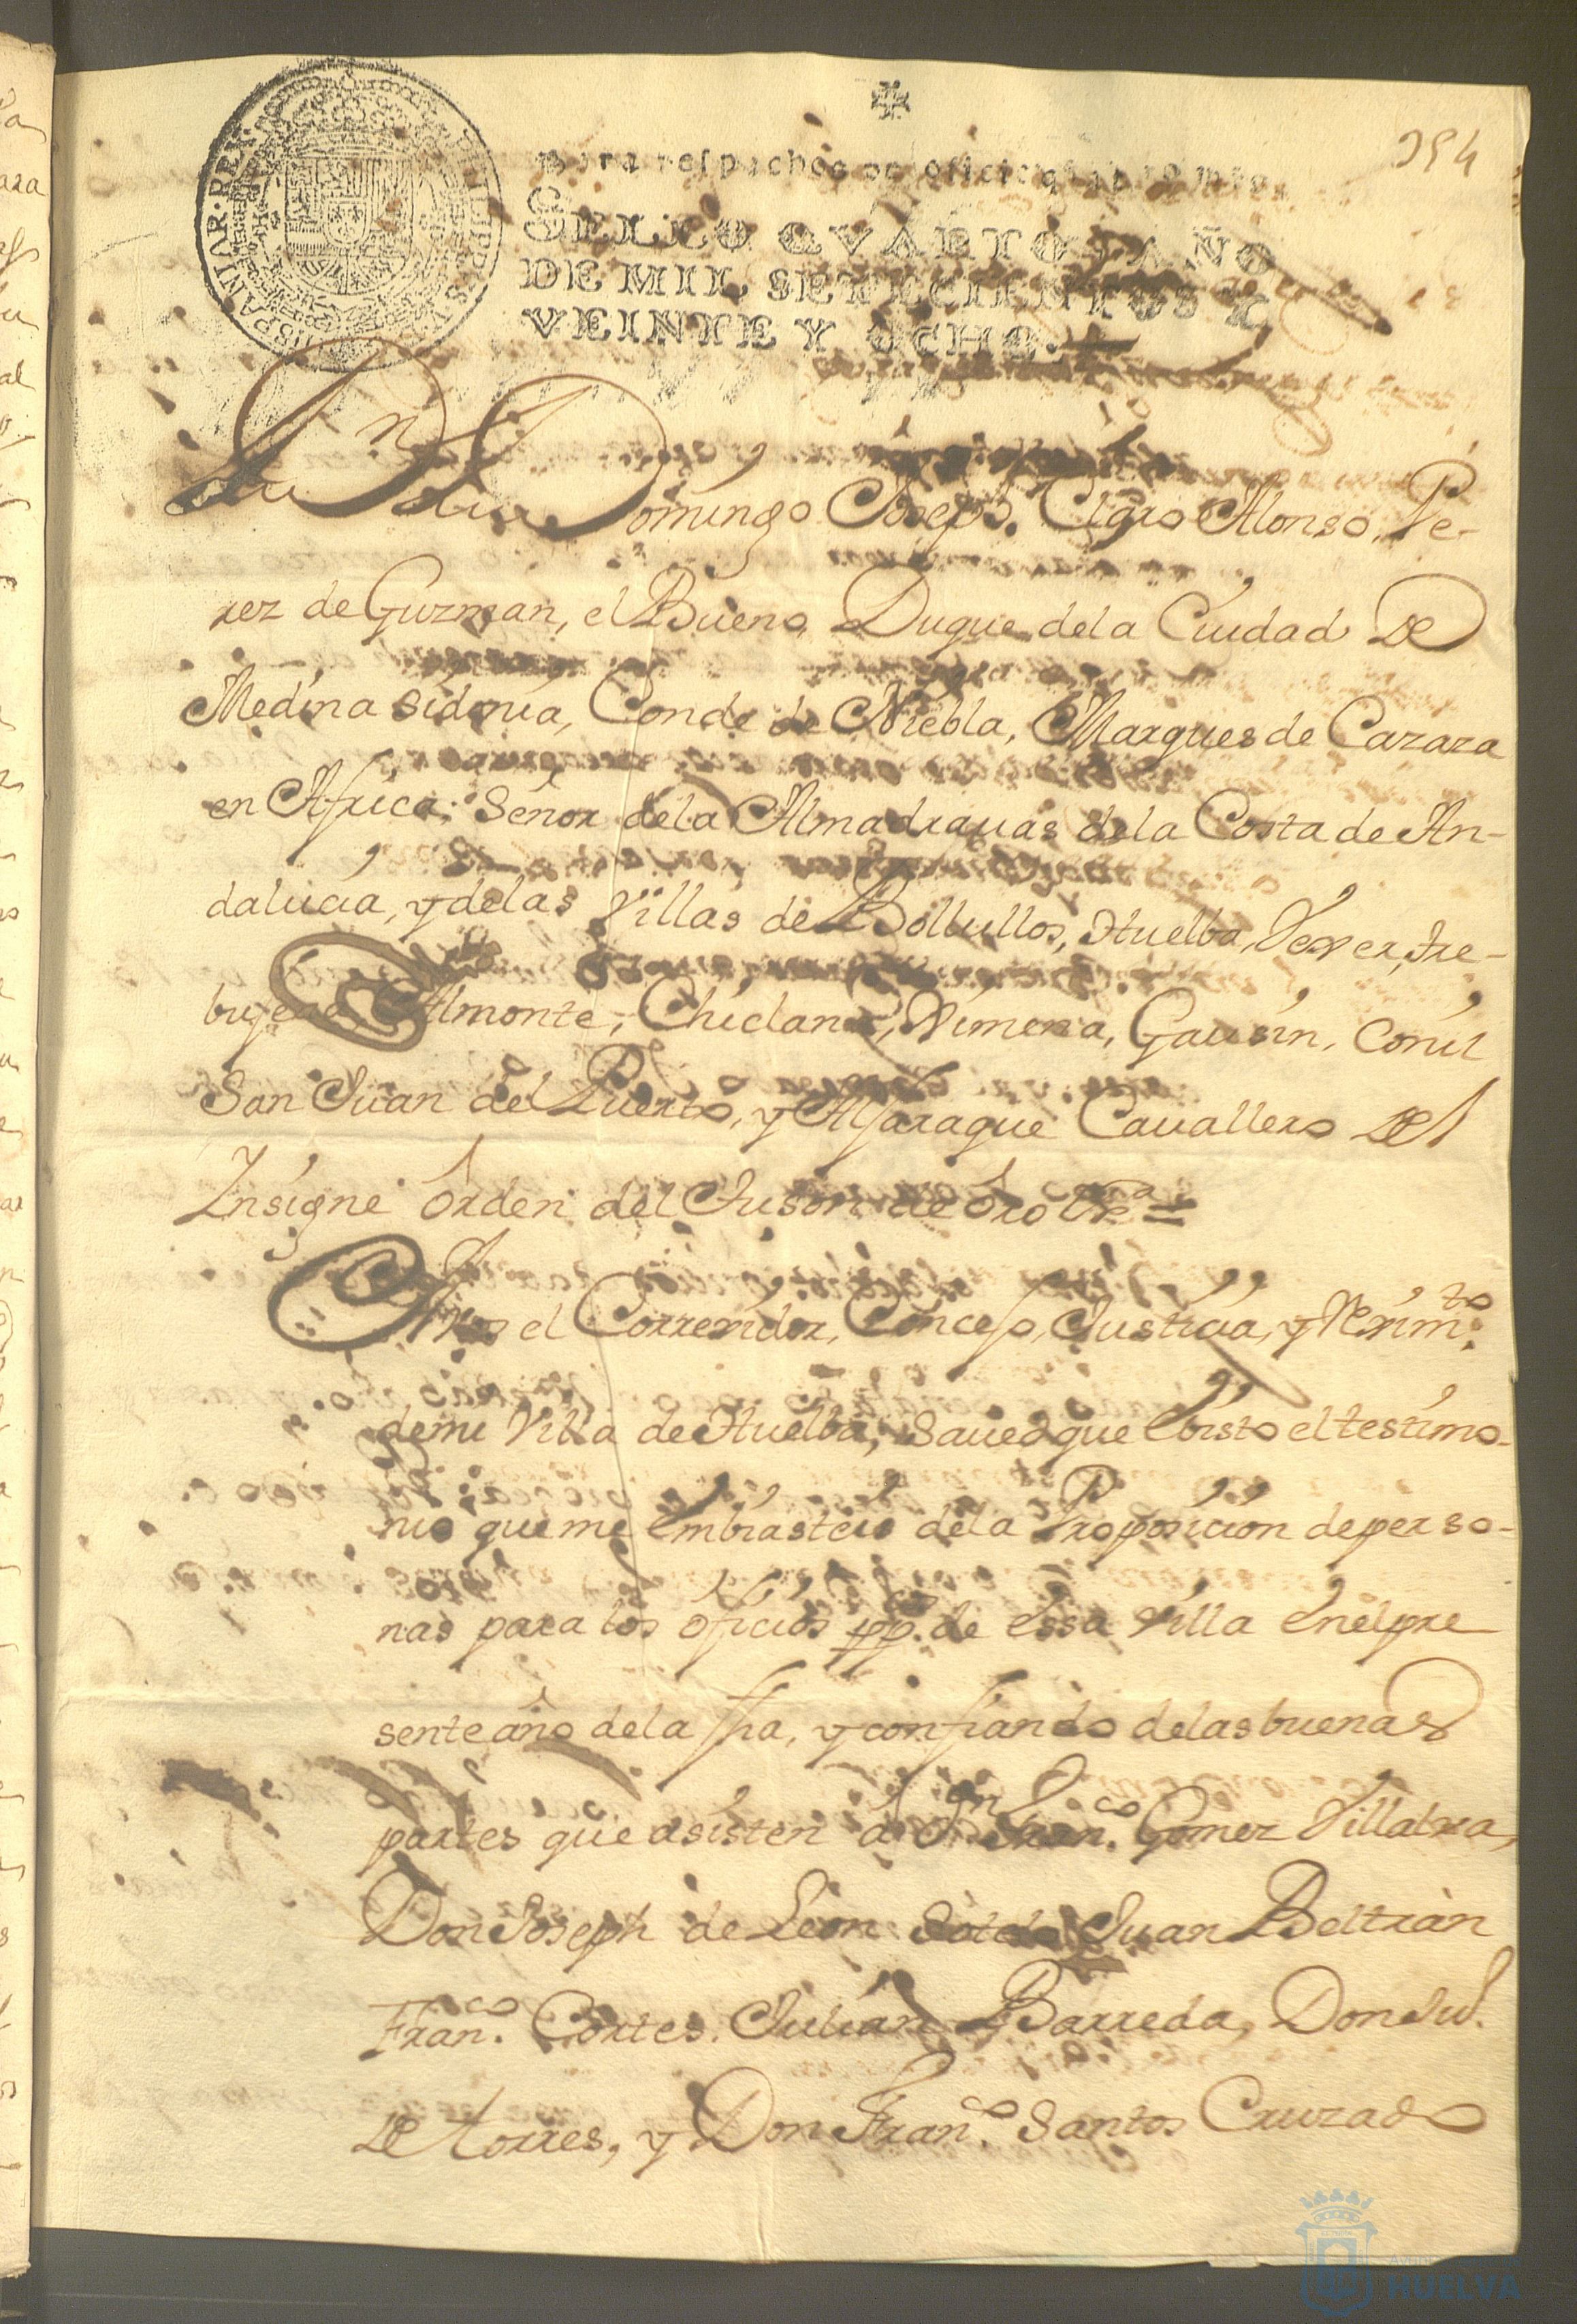 354
Para despachos de oficio quatro mrs.
SELLO QVARTO, AÑO
DE MIL SETECIENTOS Y
VEINTE Y OCHO.
PHILIPPUS V HISPANIAR. REX
Dn Domingo Joseph Claro Alonso, Pe-
rez de Guzman, el Bueno, Duque dela Ciudad De
Medina Sidonia, Conde de Niebla, Marques de Cazaza
en Africa; Señor dela Almadrauas dela Costa de An-
dalucia, y delas Villas de Bollullos, Huelba, Vexer, tre-
bujena, Almonte, Chiclana, Ximena, Gausin, Conil
San Juan del Puerto, y Alfaraque Cauallero Del
Insigne Orden del Tuson de Oro &a =
A Vos el Correxidor, Concejo, Justicia, y Reximto.
demi Villa de Huelba, Saued que E bisto el testimo-
nio que me embiasteis dela Proposicion deperso-
nas para los oficios pp.cos de essa Villa Enelpre
sente año dela fha, y confiando delasbuenas
partes que asisten a Dn Franco. Gomez Villalua,
Don Joseph de Leon Sotelo Juan Beltran
Franco. Cortes. Julian Barreda, Don Ju.
De torres, y Don Franco. Santos Cruzado
HUELVA